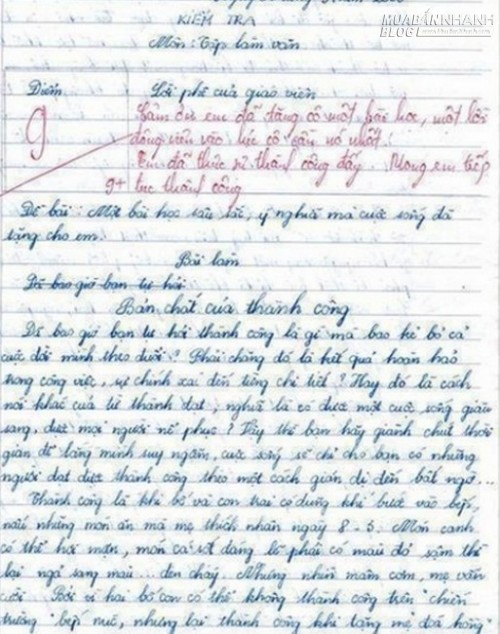 KIỂM TRA
MUABANNHANH
BLOG
Môn: Tập làm văn
Điểm
Lời phê của giáo viên
9
Cảm ơn em đã tặng cô một bài học, một lời
động viên vào lúc cô cần nó nhất!
Em đã thực sự thành công đấy. Mong em tiếp
9+
tục thành công
Đề bài: Một bài học sâu sắc, ý nghĩa mà cuộc sống đã
tặng cho em.
Bài làm
Đã bao giờ bạn tự hỏi
Bản chất của thành công
Đã bao giờ bạn tự hỏi thành công là gì mà bao kẻ bỏ cả
cuộc đời mình theo đuổi? Phải chăng đó là kết quả hoàn hảo
trong công việc, sự chính xác đến từng chi tiết? Hay đó là cách
nói khác của từ thành đạt, nghĩa là có được một cuộc sống giàu
sang, được mọi người nể phục? Vậy thì bạn hãy giành chút thời
gian để lắng mình suy ngẫm, cuộc sống sẽ chỉ cho bạn có những
người đạt được thành công theo một cách giản dị đến bất ngờ...
Thành công là khi bố và con trai có dũng khí bước vào bếp,
nấu những món ăn mà mẹ thích nhân ngày 8-3. Món canh
có thể hơi mặn, món cá sốt đáng lẽ phải có màu đỏ sậm thì
lại ngả sang màu... đen cháy. Nhưng nhìn mâm cơm, mẹ vẫn
cười. Bởi vì hai bố con có thể không thành công trên "chiến
trường" bếp núc, nhưng lại thành công khi tặng mẹ "đoá hồng"